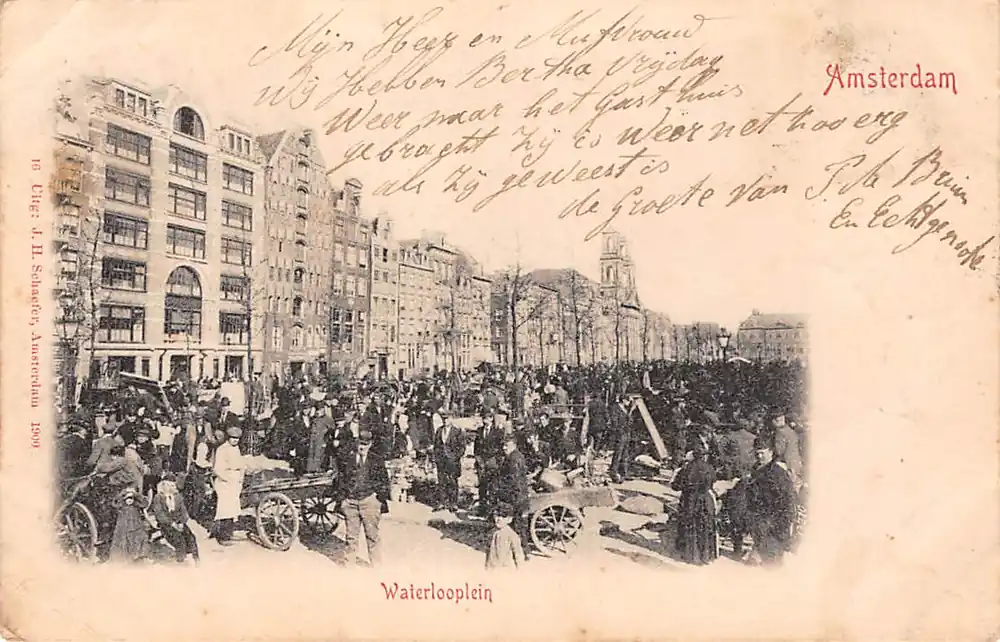 Mijn Heer en Mufvrouw
Wij Hebben Bertha Vrijdag
Weer naar het Gasthuis
gebracht Zij is Weer net hooerg
als Zij geweest is
de Groete van J de Bruin
En Echtgenoote
Amsterdam
16 Uitg: J. H. Schaefer, Amsterdam 1900
Waterlooplein